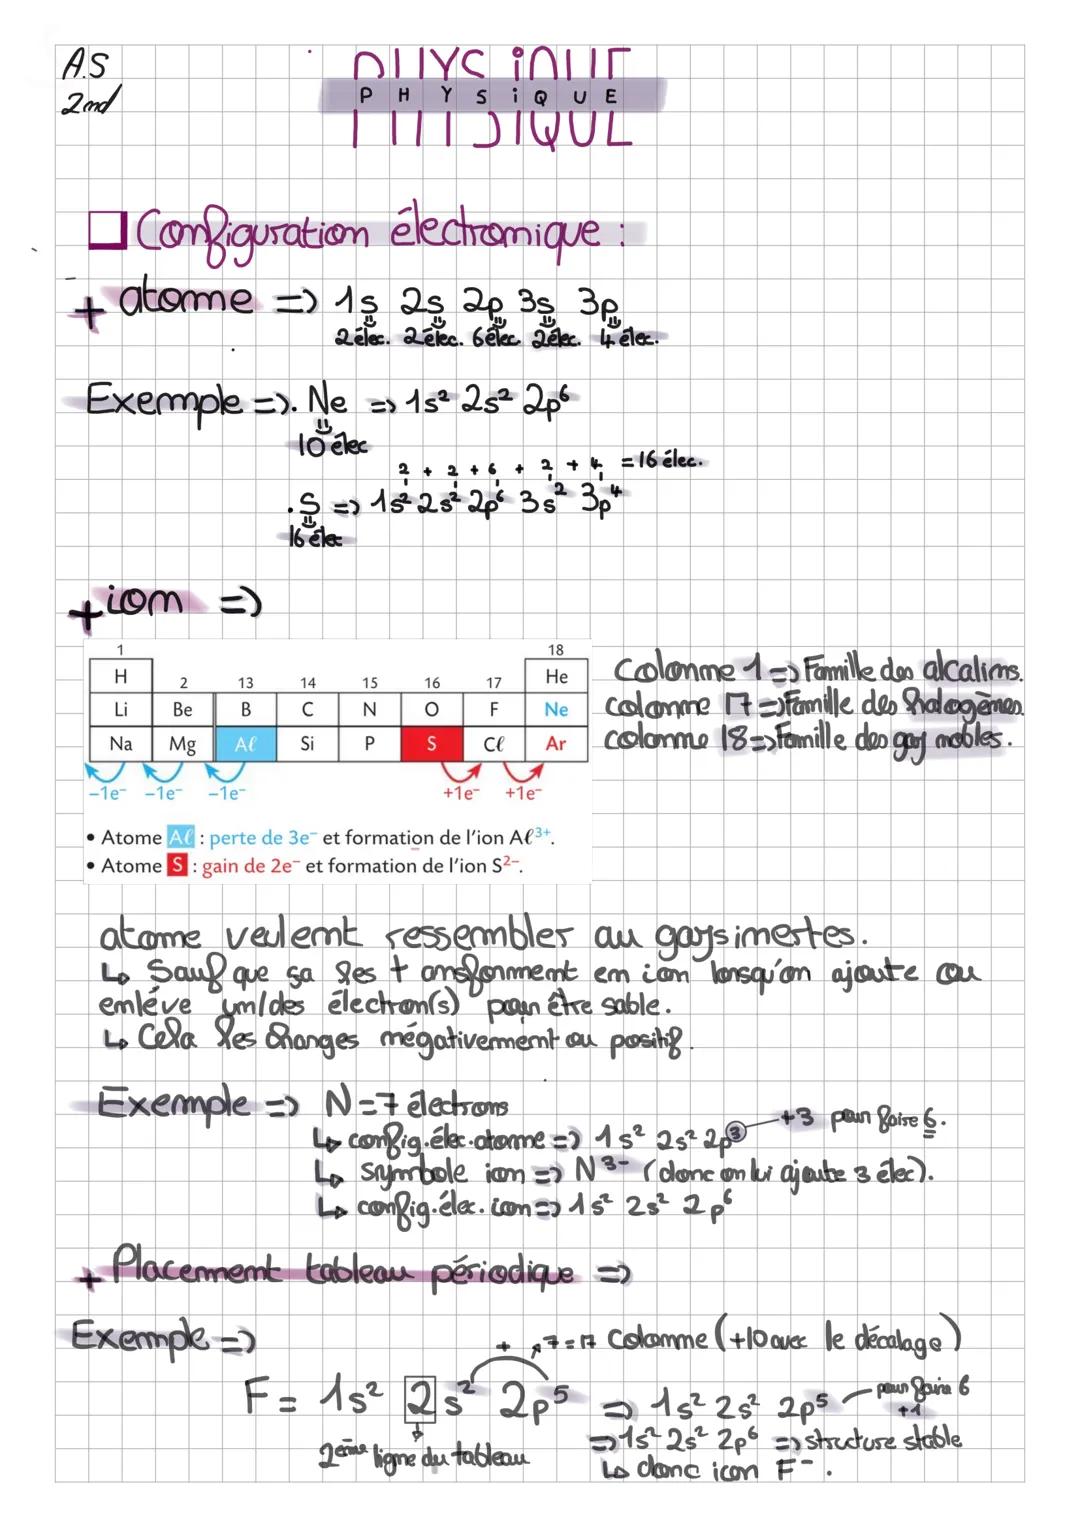 A.S
2nd
PHYSIQUE
PHYSIQUE
Configuration électronique :
+ atome => 1s 2s 2p 3s 3p
2 élec. 2 élec. 6 élec. 2 élec. 4 élec.
Exemple =>. Ne => 1s² 2s² 2p⁶
10 élec
2 + 2 + 6 + 2 + 4 = 16 élec.
. S => 1s² 2s² 2p⁶ 3s² 3p⁴
16 élec
+ ion =>
1 18
H 2 13 14 15 16 17 He
Li Be B C N O F Ne
Na Mg Aℓ Si P S Cℓ Ar
–1e⁻ –1e⁻ –1e⁻ +1e⁻ +1e⁻
• Atome Aℓ : perte de 3e⁻ et formation de l'ion Aℓ³⁺.
• Atome S : gain de 2e⁻ et formation de l'ion S²⁻.
Colonne 1 => Famille des alcalins.
colonne 17 => Famille des halogènes.
colonne 18 => Famille des gaz nobles.
atome veulent ressembler au gaz inertes.
↳ Sauf que ça les transforment en ion lorsqu'on ajoute ou
enlève un/des électron(s) pour être sable.
↳ Cela les changes négativement ou positif.
Exemple => N = 7 électrons
↳ config.élec.atome => 1s² 2s² 2p³ +3 pour faire 6.
↳ symbole ion => N³⁻ (donc on lui ajoute 3 élec).
↳ config.élec. ion => 1s² 2s² 2p⁶
+ Placement tableau périodique =>
Exemple =>
+ 7 = 17 colonne (+10 avec le décalage)
F = 1s² 2s² 2p⁵ => 1s² 2s² 2p⁵ pour faire 6
+1
2ème ligne du tableau
=> 1s² 2s² 2p⁶ => structure stable
↳ donc icon F⁻.